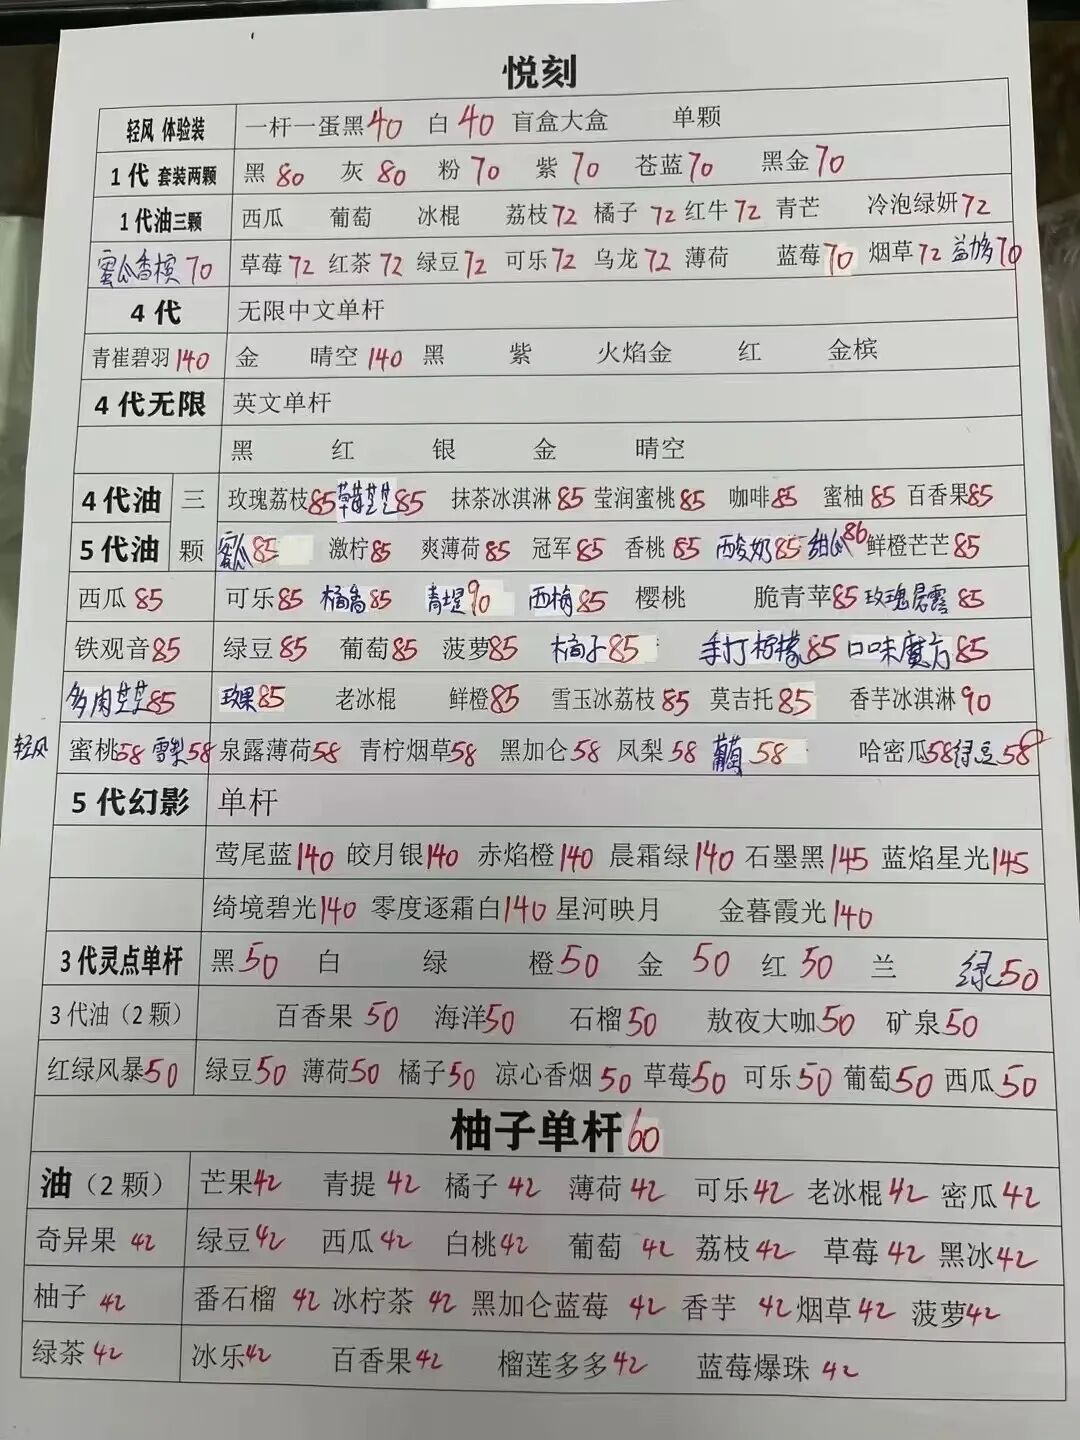 悦刻
轻风 体验装 一杆一蛋黑40 白40 盲盒大盒 单颗
1代 套装两颗 黑80 灰80 粉70 紫70 苍蓝70 黑金70
1代油三颗 西瓜 葡萄 冰棍 荔枝72 橘子72 红牛72 青芒 冷泡绿妍72
蜜瓜香槟70 草莓72 红茶72 绿豆72 可乐72 乌龙72 薄荷 蓝莓70 烟草72 益力多70
4代 无限中文单杆
青雀碧羽140 金 晴空140 黑 紫 火焰金 红 金槟
4代无限 英文单杆
黑 红 银 金 晴空
4代油 三 玫瑰荔枝85 草莓芝芝85 抹茶冰淇淋85 莹润蜜桃85 咖啡85 蜜柚85 百香果85
5代油 颗 蜜瓜85 激柠85 爽薄荷85 冠军85 香桃85 酸奶85 甜瓜86 鲜橙芒芒85
西瓜85 可乐85 橘 85 青提90 西梅85 樱桃 脆青苹85 玫瑰 85
铁观音85 绿豆85 葡萄85 菠萝85 橘子85 手打柠檬85 口味魔方85
多肉芝芝85 玫果85 老冰棍 鲜橙85 雪玉冰荔枝85 莫吉托85 香芋冰淇淋90
轻风 蜜桃58 雪梨58 泉露薄荷58 青柠烟草58 黑加仑58 凤梨58 葡萄58 哈密瓜58 绿豆58
5代幻影 单杆
莺尾蓝140 皎月银140 赤焰橙140 晨霜绿140 石墨黑145 蓝焰星光145
绮境碧光140 零度逐霜白140 星河映月 金暮霞光140
3代灵点单杆 黑50 白 绿 橙50 金50 红50 兰 绿50
3代油（2颗） 百香果50 海洋50 石榴50 敖夜大咖50 矿泉50
红绿风暴50 绿豆50 薄荷50 橘子50 凉心香烟50 草莓50 可乐50 葡萄50 西瓜50
柚子单杆60
油（2颗） 芒果42 青提42 橘子42 薄荷42 可乐42 老冰棍42 密瓜42
奇异果42 绿豆42 西瓜42 白桃42 葡萄42 荔枝42 草莓42 黑冰42
柚子42 番石榴42 冰柠茶42 黑加仑蓝莓42 香芋42 烟草42 菠萝42
绿茶42 冰乐42 百香果42 榴莲多多42 蓝莓爆珠42